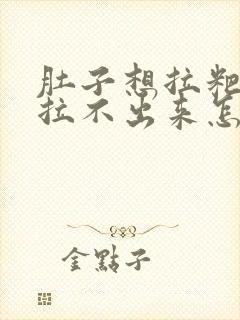 肚子想拉粑
拉不出来怎
金點子